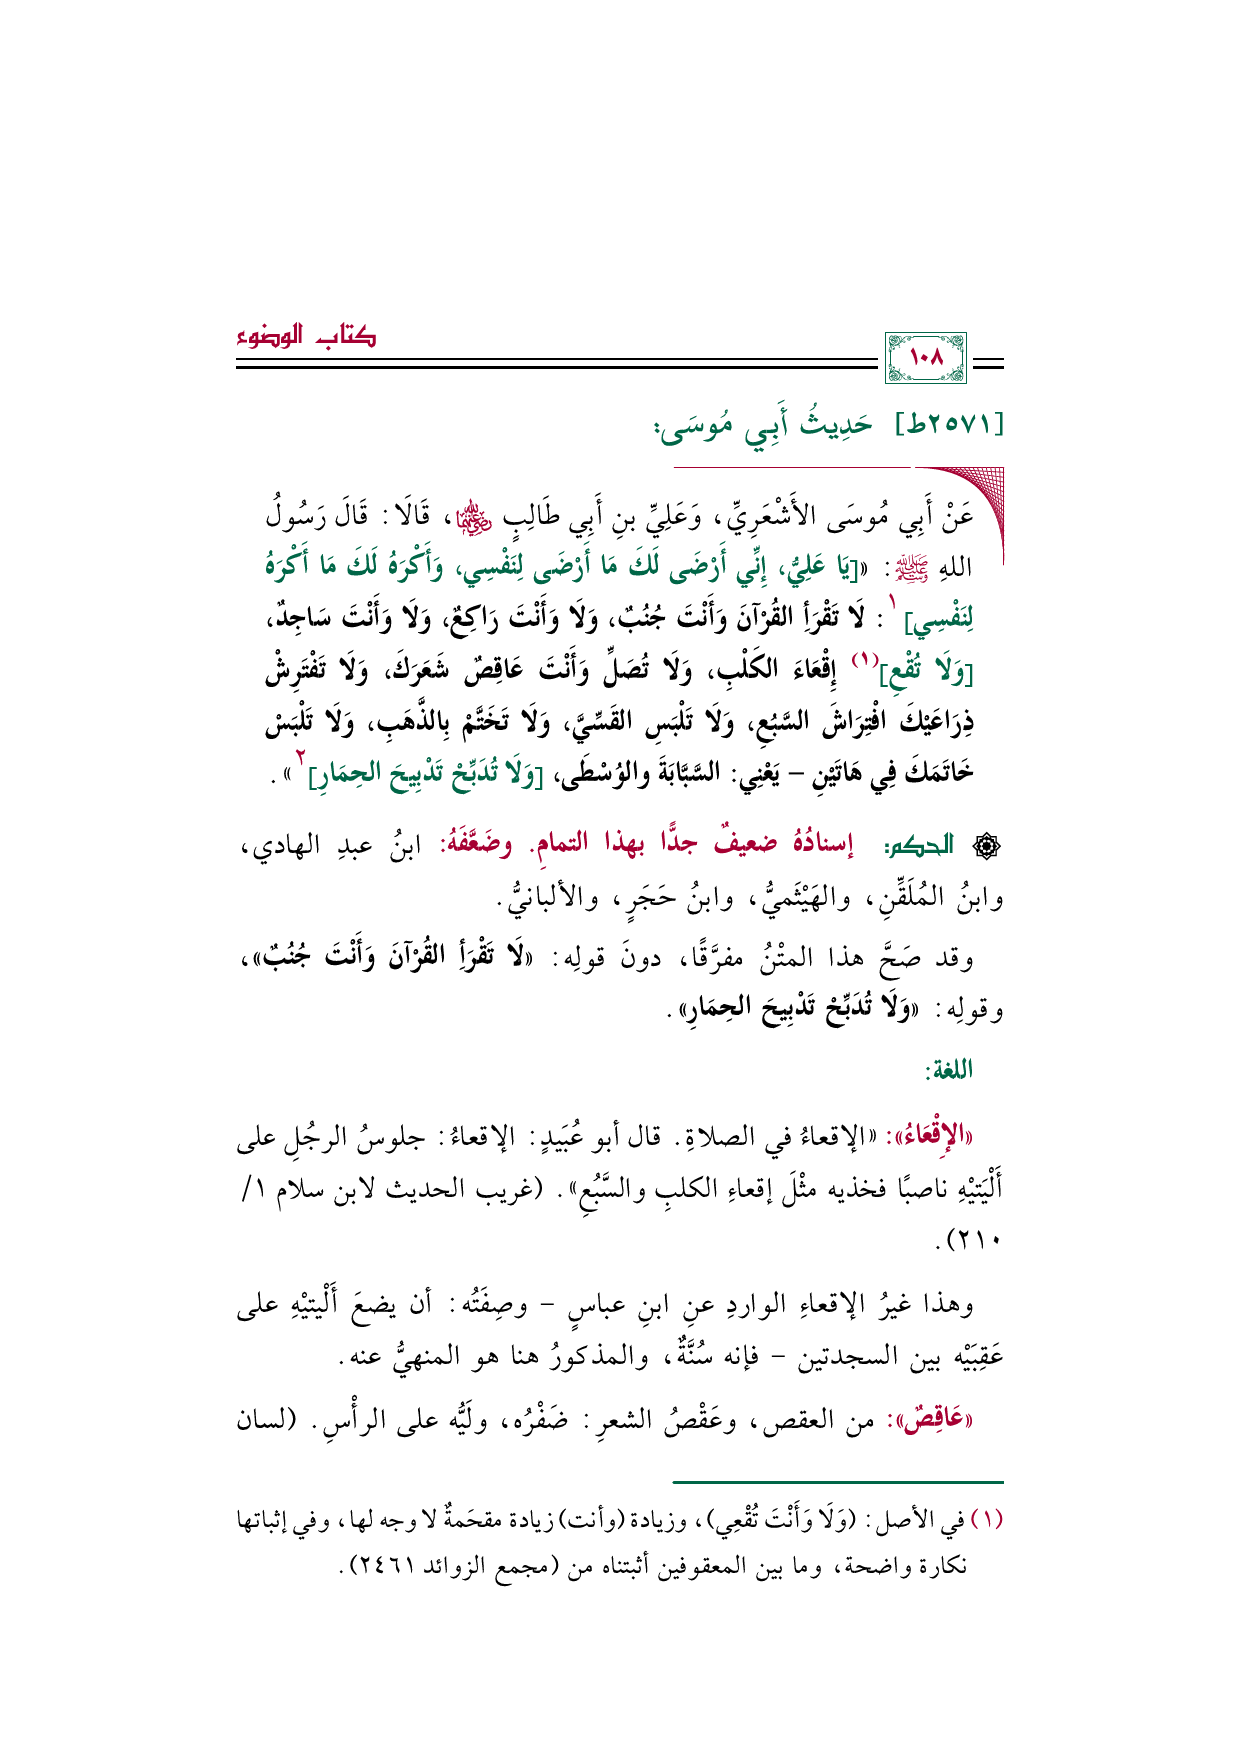 كتاب الوضوء
١٠٨
[٢٥٧١ط] حَدِيثُ أَبِي مُوسَى:
عَنْ أَبِي مُوسَى الأَشْعَرِيِّ، وَعَلِيِّ بنِ أَبِي طَالِبٍ رضي الله عنهما، قَالَا: قَالَ رَسُولُ
اللهِ ﷺ: «[يَا عَلِيُّ، إِنِّي أَرْضَى لَكَ مَا أَرْضَى لِنَفْسِي، وَأَكْرَهُ لَكَ مَا أَكْرَهُ
لِنَفْسِي]١: لَا تَقْرَأِ القُرْآنَ وَأَنْتَ جُنُبٌ، وَلَا وَأَنْتَ رَاكِعٌ، وَلَا وَأَنْتَ سَاجِدٌ،
[وَلَا تُقْعِ](١) إِقْعَاءَ الكَلْبِ، وَلَا تُصَلِّ وَأَنْتَ عَاقِصٌ شَعَرَكَ، وَلَا تَفْتَرِشْ
ذِرَاعَيْكَ افْتِرَاشَ السَّبُعِ، وَلَا تَلْبَسِ القَسِّيَّ، وَلَا تَخَتَّمْ بِالذَّهَبِ، وَلَا تَلْبَسْ
خَاتَمَكَ فِي هَاتَيْنِ – يَعْنِي: السَّبَّابَةَ والوُسْطَى، [وَلَا تُدَبِّحْ تَدْبِيحَ الحِمَارِ]٢».
الحكم: إسنادُهُ ضعيفٌ جدًّا بهذا التمامِ. وضَعَّفَهُ: ابنُ عبدِ الهادي،
وابنُ المُلَقِّنِ، والهَيْثَميُّ، وابنُ حَجَرٍ، والألبانيُّ.
وقد صَحَّ هذا المتْنُ مفرَّقًا، دونَ قولِه: «لَا تَقْرَأِ القُرْآنَ وَأَنْتَ جُنُبٌ»،
وقولِه: «وَلَا تُدَبِّحْ تَدْبِيحَ الحِمَارِ».
اللغة:
«الإِقْعَاءُ»: «الإقعاءُ في الصلاةِ. قال أبو عُبَيدٍ: الإقعاءُ: جلوسُ الرجُلِ على
أَلْيَتيْهِ ناصبًا فخذيه مثْلَ إقعاءِ الكلبِ والسَّبُعِ». (غريب الحديث لابن سلام ١/
٢١٠).
وهذا غيرُ الإقعاءِ الواردِ عنِ ابنِ عباسٍ – وصِفَتُه: أن يضعَ أَلْيتيْهِ على
عَقِبَيْه بين السجدتين – فإنه سُنَّةٌ، والمذكورُ هنا هو المنهيُّ عنه.
«عَاقِصٌ»: من العقص، وعَقْصُ الشعرِ: ضَفْرُه، وليُّه على الرأْسِ. (لسان
(١) في الأصل: (وَلَا وَأَنْتَ تُقْعِي)، وزيادة (وأنت) زيادة مقحَمةٌ لا وجه لها، وفي إثباتها
نكارة واضحة، وما بين المعقوفين أثبتناه من (مجمع الزوائد ٢٤٦١).